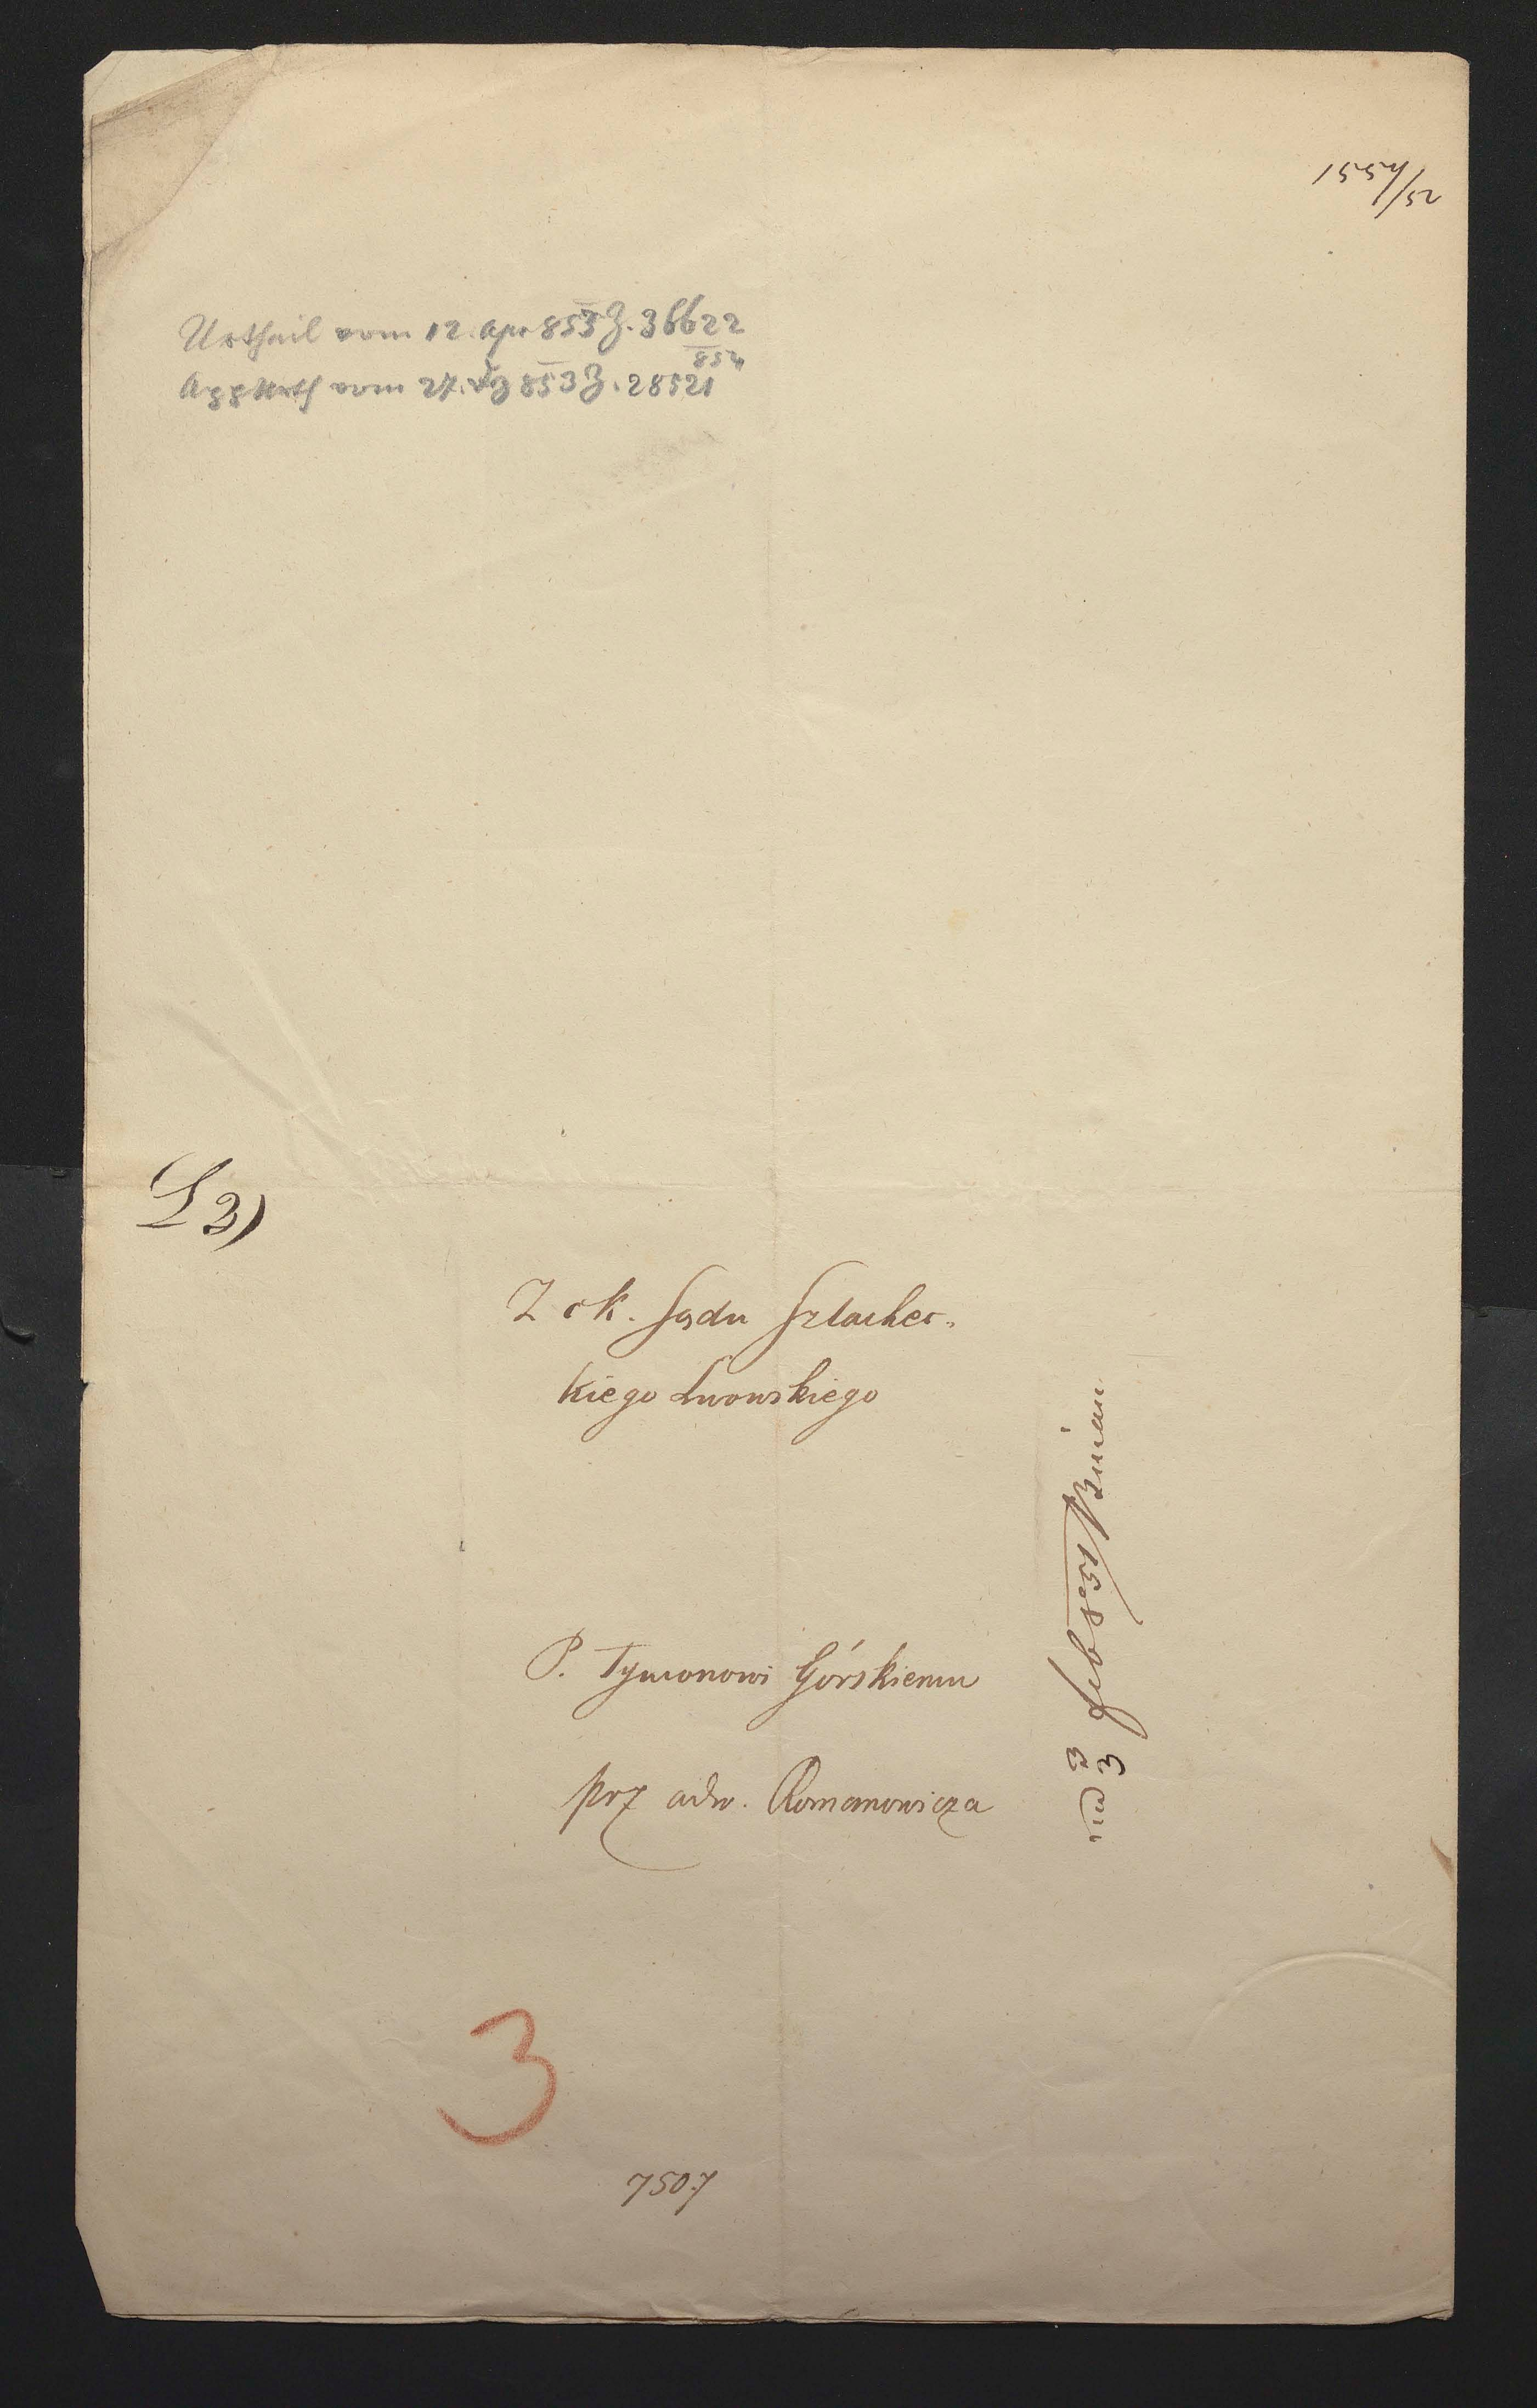 1554/52
Urtheil vom 12. Apr 853 Z. 36622
852
App Urth vom 27. 853 Z. 28521
L 3)
Z ck. Sądu Szlachec-
kiego Lwowskiego
P. Tymonowi Górskiemu
prz adw. Romanowicza
3/3 feb 851
3
7507